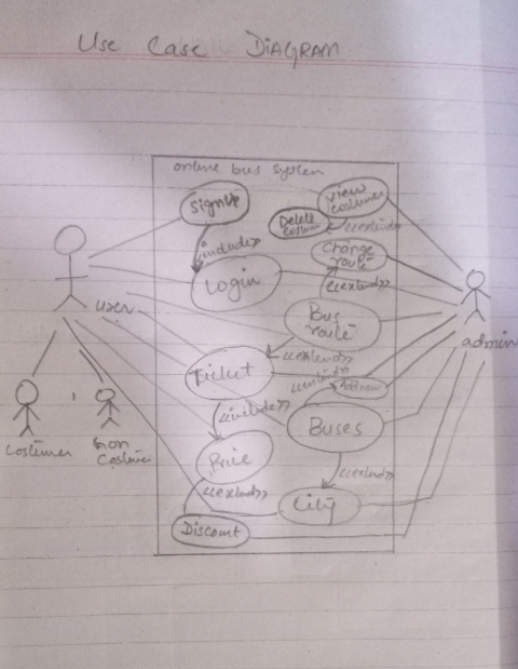 Use Case DIAGRAM
online bus system
SignUp
View
costumer
Delete
<<extend>>
<<include>>
Change
route
Login
<<extend>>
user
Bus
route
admin
<<extend>>
Ticket
<<include>>
Buses
costumer
non
costumer
Price
<<extend>>
<<extend>>
City
Discount